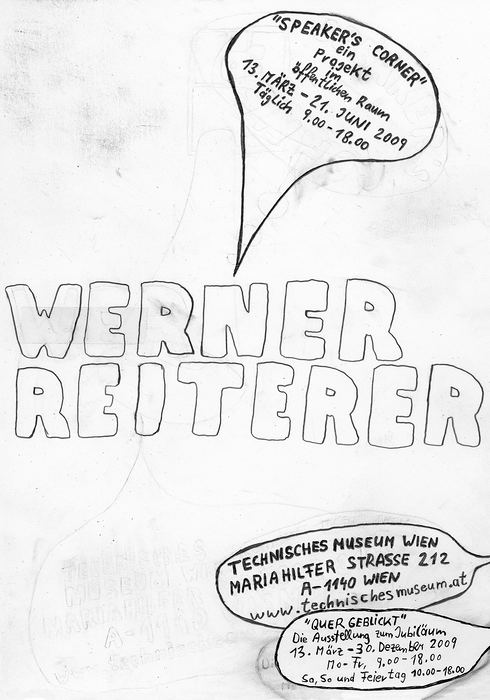 "SPEAKER'S CORNER"
ein
Projekt
im
öffentlichen Raum
13. MÄRZ - 21. JUNI 2009
Täglich 9.00-18.00
WERNER
REITERER
TECHNISCHES MUSEUM WIEN
MARIAHILFER STRASSE 212
A-1140 WIEN
www.technischesmuseum.at
"QUER GEBLICKT"
Die Ausstellung zum Jubiläum
13. März - 30. Dezember 2009
Mo-Fr, 9.00-18.00
Sa, So und Feiertag 10.00-18.00